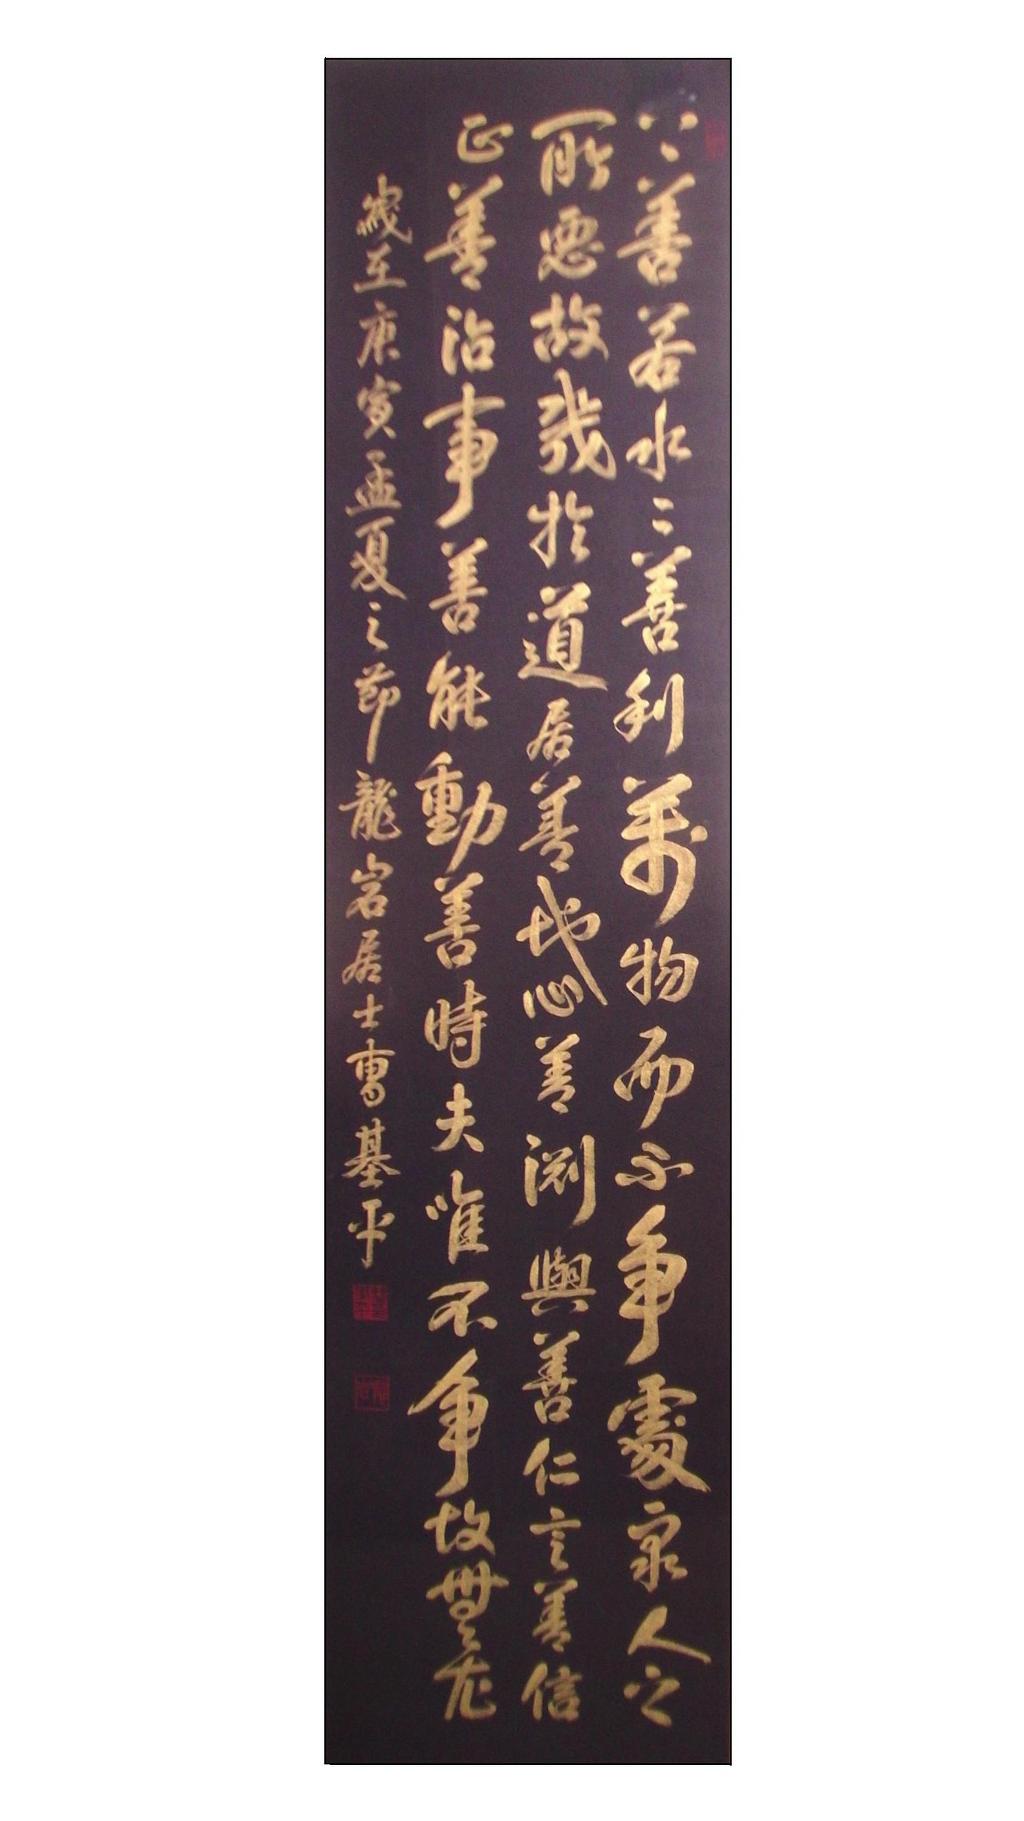 上善若水水善利萬物而不争處衆人之
所惡故幾於道居善地心善渊與善仁言善信
正善治事善能動善時夫唯不争故無尤
歲在庚寅孟夏之節龍岩居士曹基平